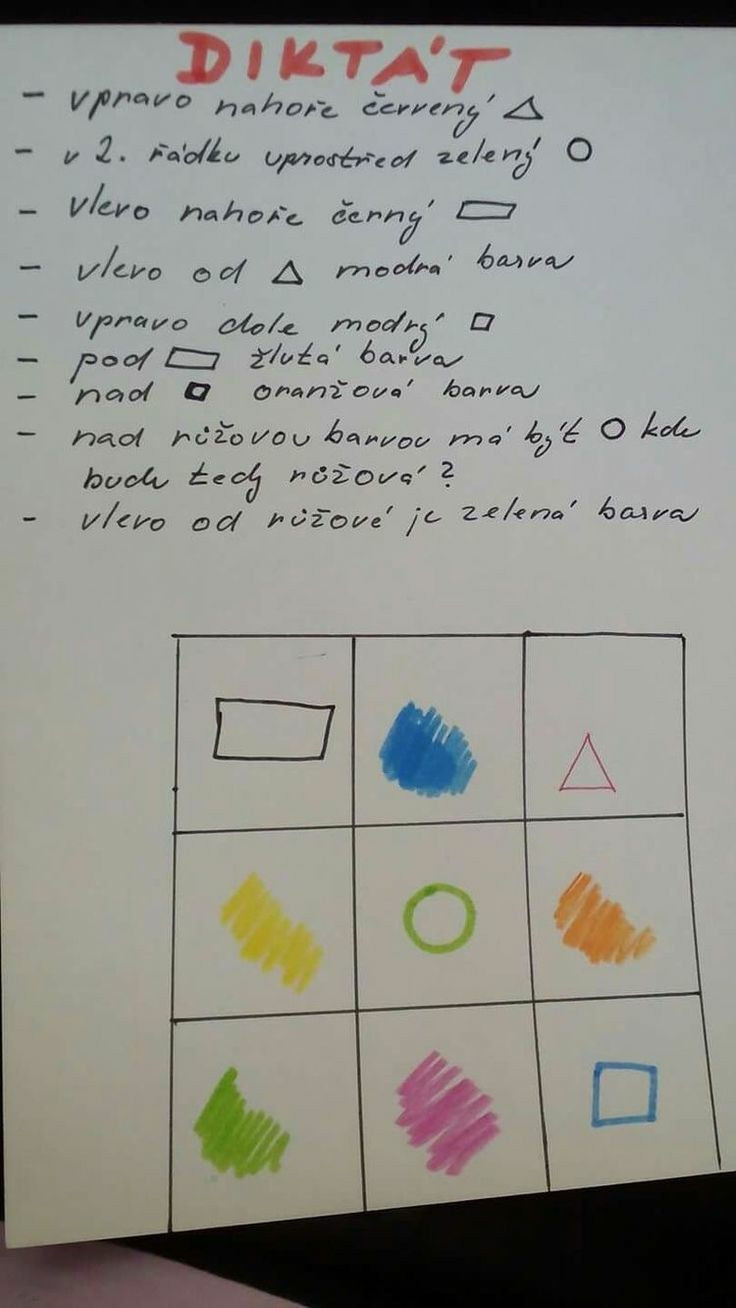 DIKTÁT
- vpravo nahoře červený △
- v 2. řádku uprostřed zelený ○
- vlevo nahoře černý ▭
- vlevo od △ modrá barva
- vpravo dole modrý □
- pod ▭ žlutá barva
- nad □ oranžová barva
- nad růžovou barvou má být ○ kde
bude tedy růžová?
- vlevo od růžové je zelená barva